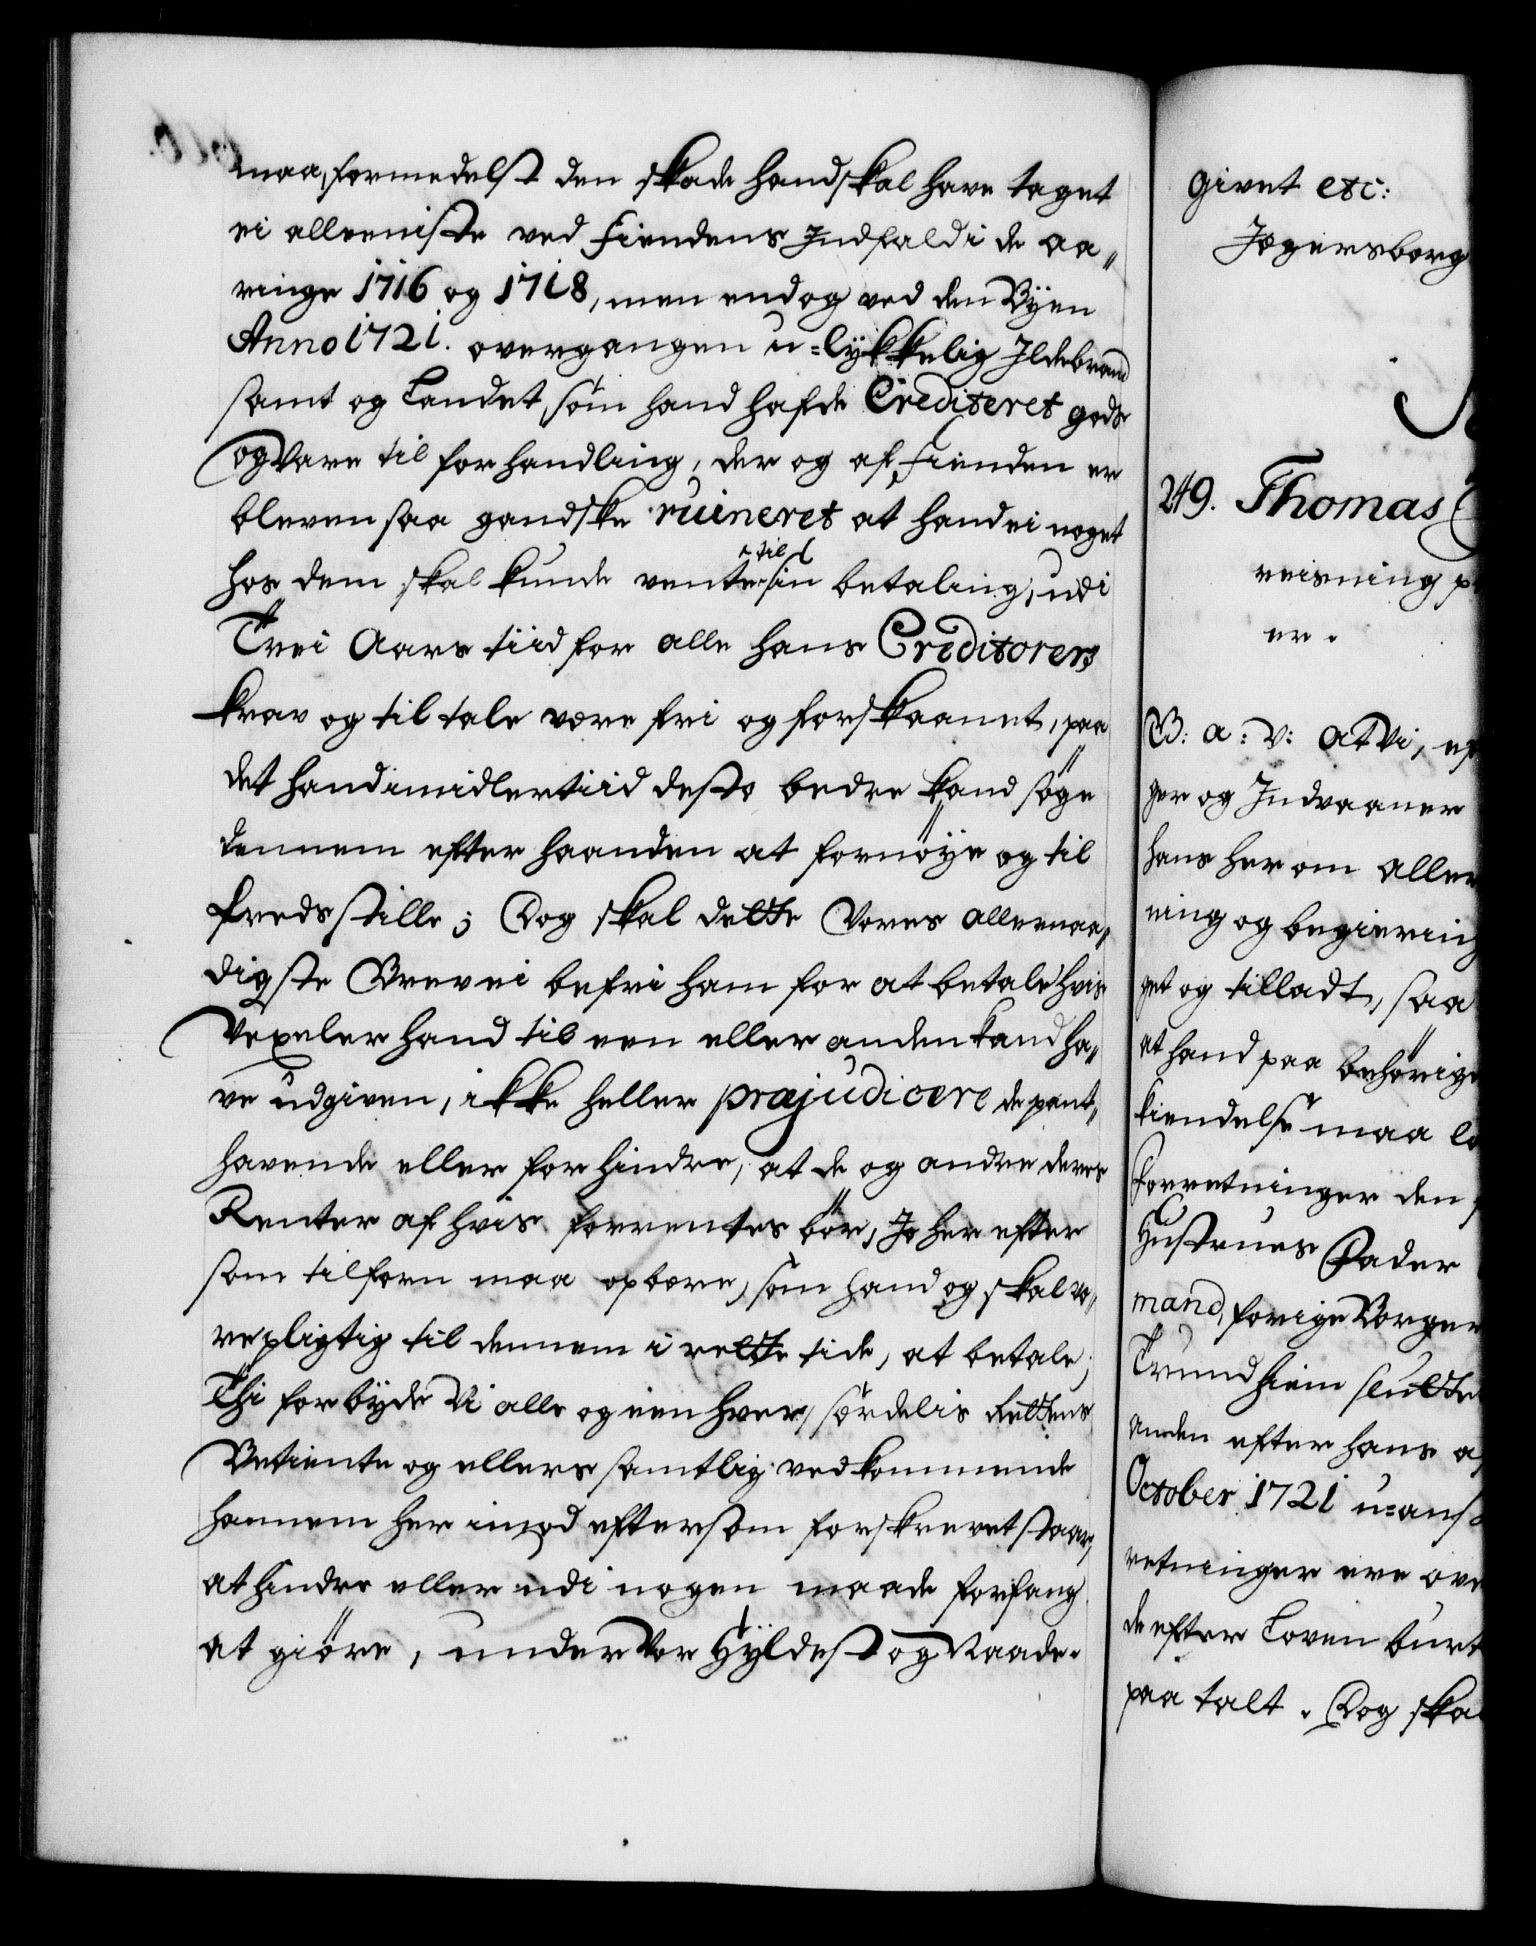 maa, formedelst den skade hand skal have taget
ei alleeniste ved Fiendens Indfald i de Aa„
ringe 1716 og 1718, men endog ved den Byen
Anno 1721. overgangen u-lykkelig Ildebrand
samt og Landet, som hand hafde Crediteret gods
og Vare til forhandling, der og af Fienden er
bleven saa gandske ruineret at hand ei noget
hos dem skal kunde vente til sin betaling, udi
Trei Aars tiid for alle hans Creditorers
krav og tiltale være fri og forskaanet, paa
det hand imidlertiid desto bedre kand søge
dennem efter haanden at fornøye og til
fredsstille; Dog skal dette Vores allernaa„
digste Brev ei befri ham for at betale hvis
Vexeler hand til een eller anden kand ha„
ve udgiven, ikke heller præjudicere de pant„
havende eller forhindre, at de og andre deres
Renter af hvis forrentes bør, Jo her efter
som tilforn maa opbære, som hand og skal væ„
re pligtig til dennem i rette tide, at betale;
Thi forbyde Vi alle og een hver, sørdelis Rettens
Betiente og ellers samtlig vedkommende
hannem her imod eftersom forskrevet staar,
at hindre eller udi nogen maade forfang
at giøre, under Vor Hyldest og Naade.
givet etc:
Jægersborg
249. Thomas
reisning
er.
B: a: v: at Vi, ef
ger og Indvaaner
hans her om aller
ning og begiering
get og tilladt, saa
at hand paa behørige
kiendelse maa
forretninger den
Hustrues Fader
mand, forige Borger
Trundhiem slutte
anden efter hans
October 1721 u-ans
retninger ere
de efter Loven burt
paa talt. Dog skal